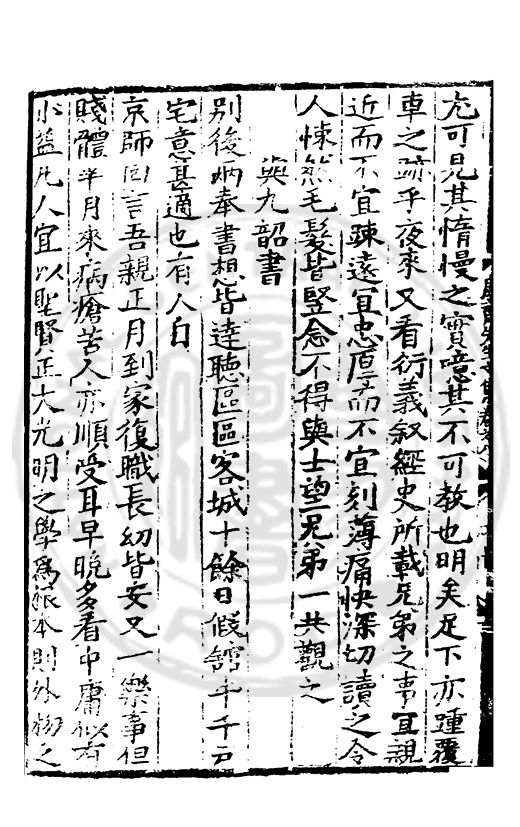 尤可見其惰慢之實噫其不可教也明矣足下亦踵覆
車之疏乎夜來又看衍義叙經史所載兄弟之事宜親
近而不宜疎遠宜忠厚而不宜刻薄痛快深切讀之令
人悚然毛髮皆豎念不得與士望兄弟一共觀之
與九韶書
別後两奉書想皆達聽區區客城十餘日假館年千戸
宅意甚適也有人自
京師回言吾親正月到家復職長幼皆安又一樂事但
賤體半月來病瘡苦人亦順受耳早晚多看中庸似有
小益凡人宜以聖賢正大光明之學爲根本則外物之